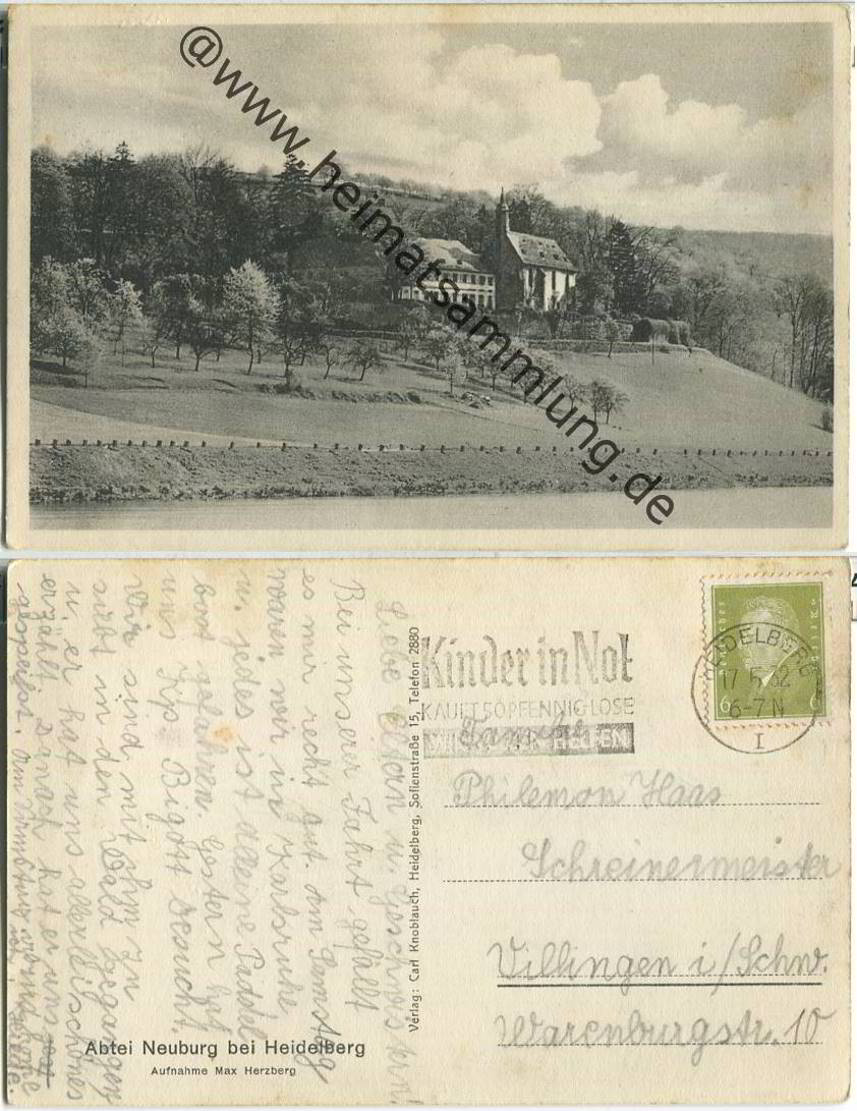 @www.heimatsammlung.de
Liebe Eltern u. Geschwisterkn!
Bei unserer Fahrt gefällt
es mir recht gut. Am Samstag
waren wir in Karlsruhe
u. jedes ist Paddel
boot gefahren. Gestern hat
uns Kp. Bigott besucht.
Wir sind mit ihm zu
erst in den Wald gegangen
u. er hat uns allerlei schönes
erzählt danach hat er uns
abgespeist. Am
Verlag: Carl Knoblauch, Heidelberg, Sofienstraße 15, Telefon 2880
Kinder in Not
KAUFT 50 PFENNIG LOSE
HELFEN
Deutsches Reich
6 6
HEIDELBERG
17.5.32
6-7 N
I
Familie
Philemon Haas
Schreinermeister
Villingen i/Schw.
Warenburgstr. 10
Abtei Neuburg bei Heidelberg
Aufnahme Max Herzberg